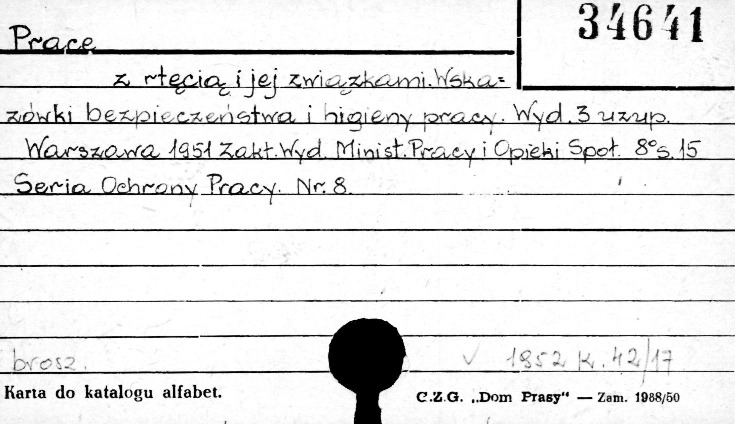 34641
Prace
z rtęcią i jej związkami. Wska=
zówki bezpieczeństwa i higieny pracy. Wyd. 3 uzup.
Warszawa 1951 Zakt. Wyd. Minist. Pracy i Opieki Społ. 8° s. 15
Seria Ochrony Pracy. Nr. 8.
brosz. √ 1952 K. 42/17
Karta do katalogu alfabet. C.Z.G. „Dom Prasy“ — Zam. 1988/50